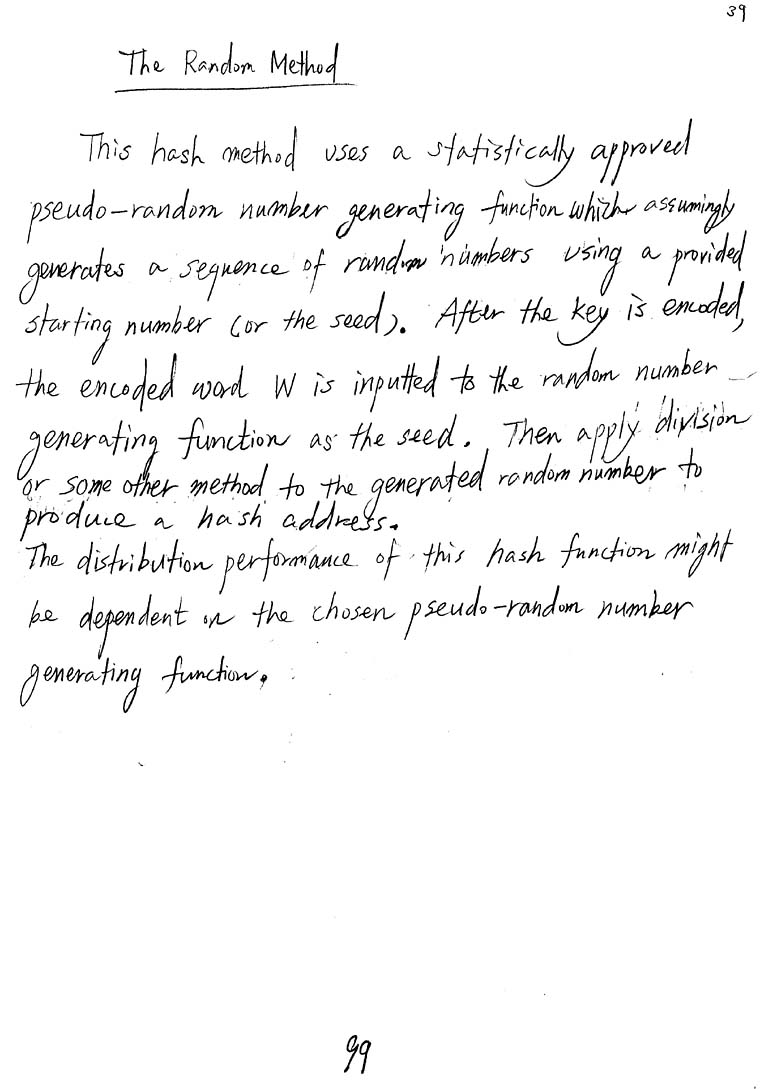 39
The Random Method
This hash method uses a statistically approved
pseudo-random number generating function which assumingly
generates a sequence of random numbers using a provided
starting number (or the seed). After the key is encoded,
the encoded word W is inputted to the random number
generating function as the seed. Then apply division
or some other method to the generated random number to
produce a hash address.
The distribution performance of this hash function might
be dependent on the chosen pseudo-random number
generating function.
99